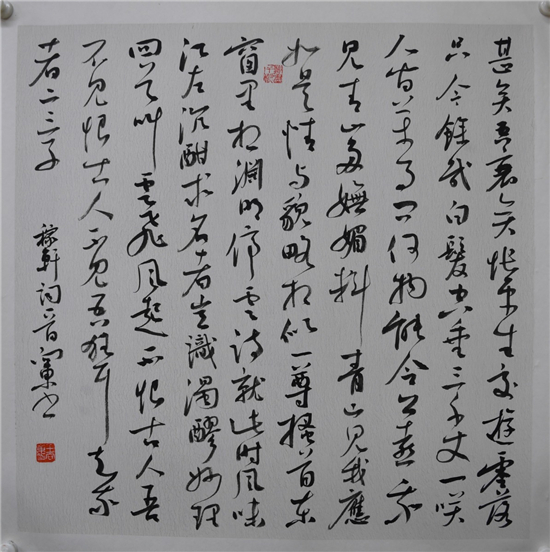 甚矣吾衰矣悵平生交遊零落
只今餘幾白髮空垂三千丈一笑
人間萬事問何物能令公喜我
見青山多嫵媚料青山見我應
如是情與貌略相似一尊搔首東
窗里想淵明停雲詩就此時風味
江左沉酣求名者豈識濁醪妙理
回首叫雲飛風起不恨古人吾
不見恨古人不見吾狂耳知我
者二三子
稼軒詞